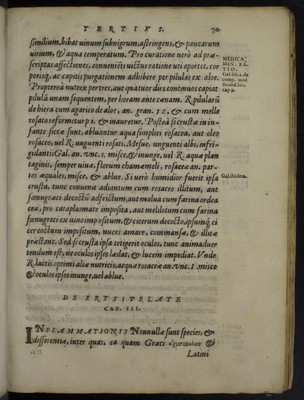 TERTIVS. 70
similium, bibat uinum subnigrum, astringens, & paucarum
uirium, & aqua temperatum. Pro curatione uerò ad præ-
scriptas affectiones, conuenit
corporis, ac capitis purgationem adhibere per pilulas ex aloe.
Propterea nutrix per tres, aut quatuor dies continuos capiat
pilulā unam sequentem, per horam ante cœnam. R. pilularū
de hiera cum agarico de aloe, an. gran. & cum melle
rosato reformetur & inauretur. Posteà si crustæ in in-
fante siccæ sunt, abluantur aqua simplici rosacea, aut oleo
rosaceo, uel R. unguenti rosati, Mesuæ, unguenti albi, infri-
gidantis Gal. an. unc. 1. misce, & inunge, uel R. aquæ plan
taginis, semper uiuæ, florum chamæmeli, rosaceæ an. par-
tes æquales, misce, & ablue. Si uerò humidior fuerit ipsa
crusta, tunc conuenit adiantum cum rosaceo illitum, aut
fœnugræci decoctū adstrictum, aut malua cum farina ordea
cea, pro cataplasmate imposita, aut melilotum cum farina
fœnugræci ex uino impositum, & cicerum decocto, ipsumq́; ci
cer coctum impositum, nuces amaræ, commansæ, & illitæ
præstant. Sed si crusta ipsa tetigerit oculos, tunc animaduer
tendum est, ne oculos ipsos lædat, & lucem impediat. Vnde
R. lactis optimi aliæ nutricis, aquæ rosaceæ an. unc. 1. misce
& oculos ipsos inunge, uel ablue.
MEDICA-
MEN. RA-
TIO.
Gal. ibidem.
DE ERYSIPELATE
CAP. III.
INFLAMMATIONIS Nonnullæ sunt species, &
differentiæ, inter quas, ea quam Græci &
Latini